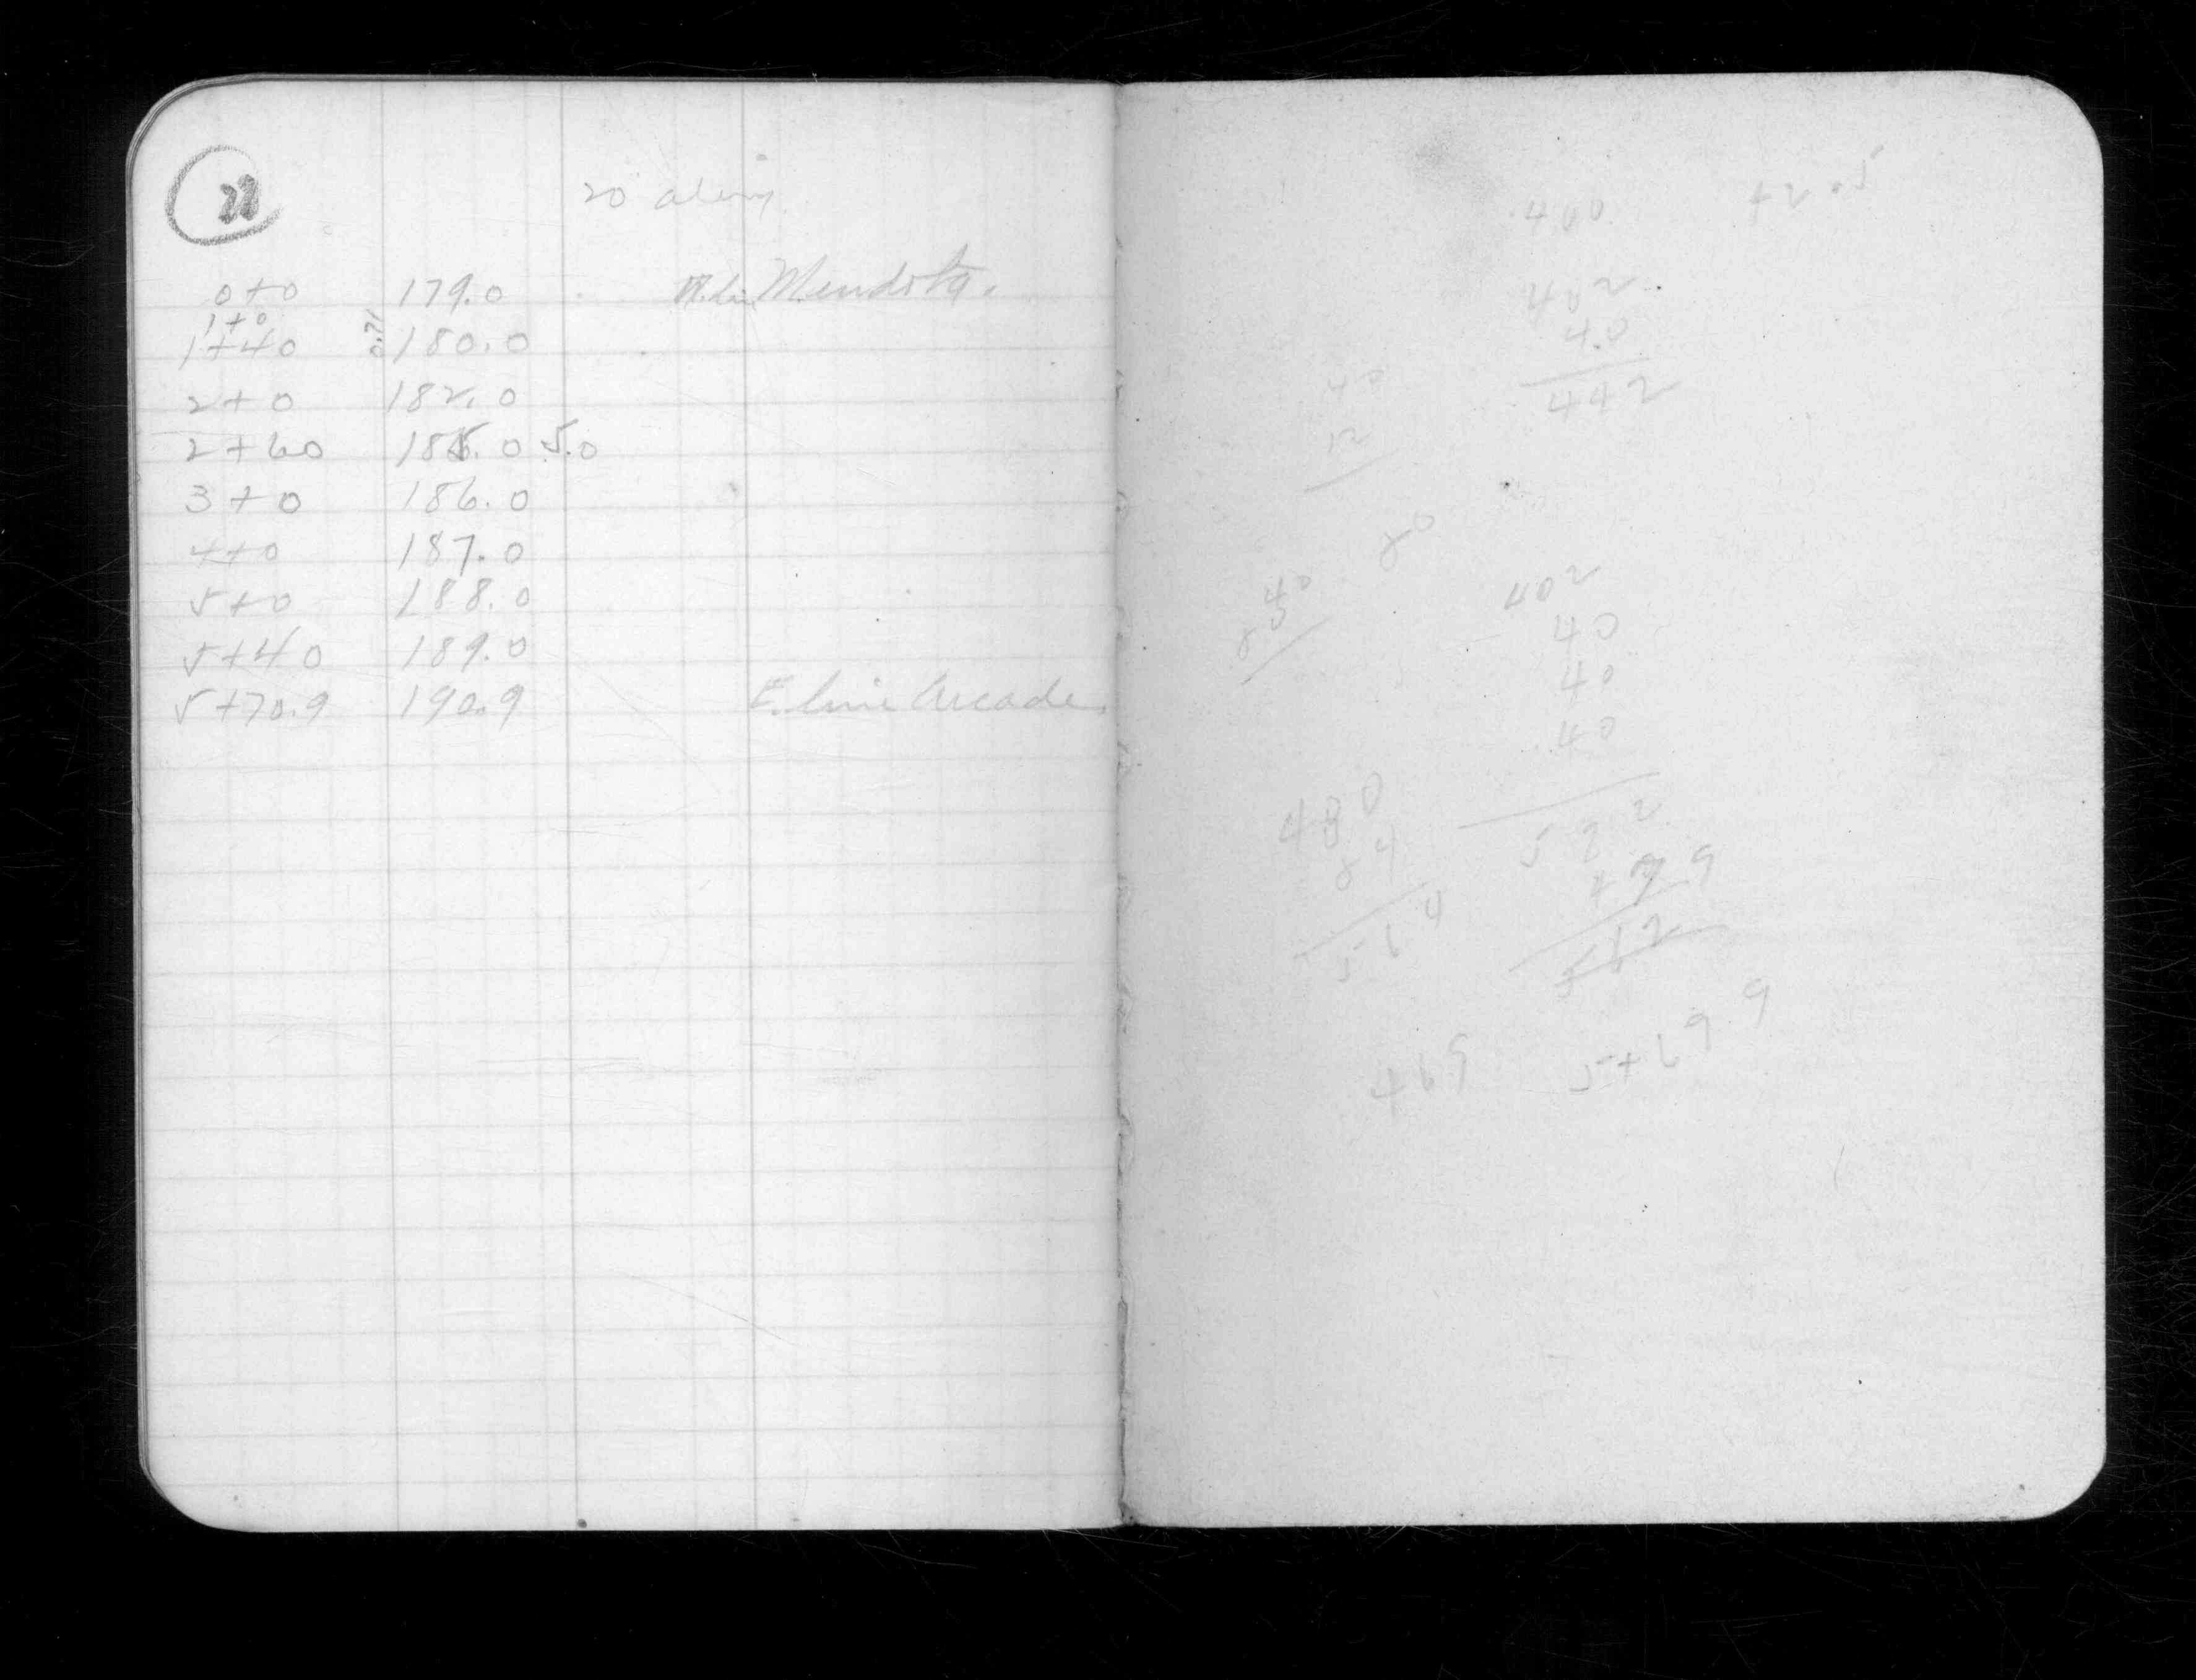 22
20' alley
0+0 179.0 W. Lin Mendota.
1+0
1+40 180.0
2+0 182.0
2+60 185.0 5.0
3+0 186.0
4+0 187.0
5+0 188.0
5+40 189.0
5+70.9 190.9 E. line Arcade
400 +2.5
402
40
442
40
12
80
40
402
40
40
40
522
480
84
564
562
469 5+69.9